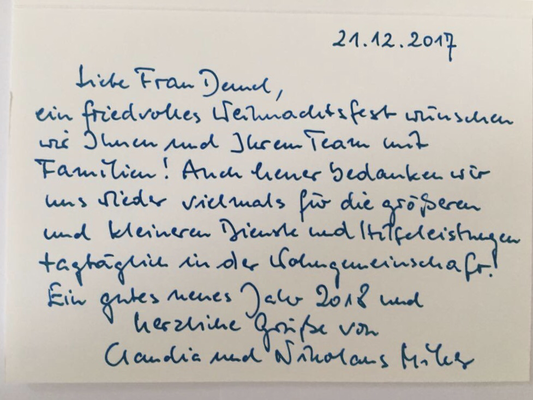 21.12.2017
Liebe Frau
ein friedvolles Weihnachtsfest wünschen
wir Ihnen und Ihrem Team mit
Familien! Auch heuer bedanken wir
uns wieder vielmals für die größeren
und kleineren Dienste und Hilfeleistungen
tagtäglich in der Wohngemeinschaft!
Ein gutes neues Jahr 2018 und
herzliche Grüße von
Claudia und Nikolaus